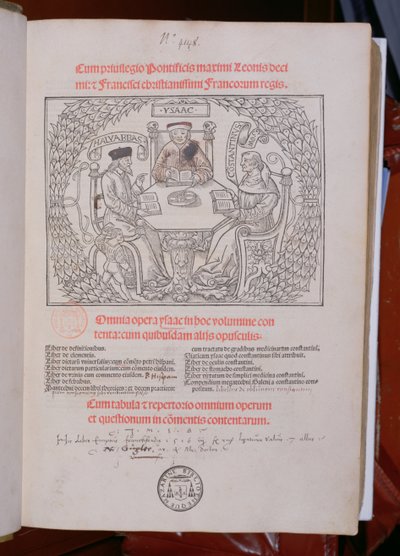 Nº
Cum priuilegio Pontificis maximi Leonis deci
mi: & Francisci christianissimi Francorum regis.
HALYABBAS
YSAAC
CONSTANTINVS
MON
Omnia opera ysaac in hoc volumine con
tenta: cum quibusdam alijs opusculis:
Liber de definitionibus.
Liber de elementis.
Liber dietarũ vniuersaliũ: cum cõmẽto petri hispani.
Liber dietarum particularium: cum cõmẽto eiusdem.
Liber de vrinis cum commento eiusdem.
Liber de febribus.
Pantechni decem libri theorices: et decem practices:
cum tractatu de gradibus medicinarum constantini.
Viaticum ysaac quod constantinus sibi attribuit.
Liber de oculis constantini.
Liber de stomacho constantini.
Liber virtutum de simplici medicina constantini.
Compendium megatechni Galeni a constantino com-
positum.
Cum tabula & repertorio omnium operum
et questionum in cõmentis contentarum.
BIBLIOTHEQUE MAZARINE